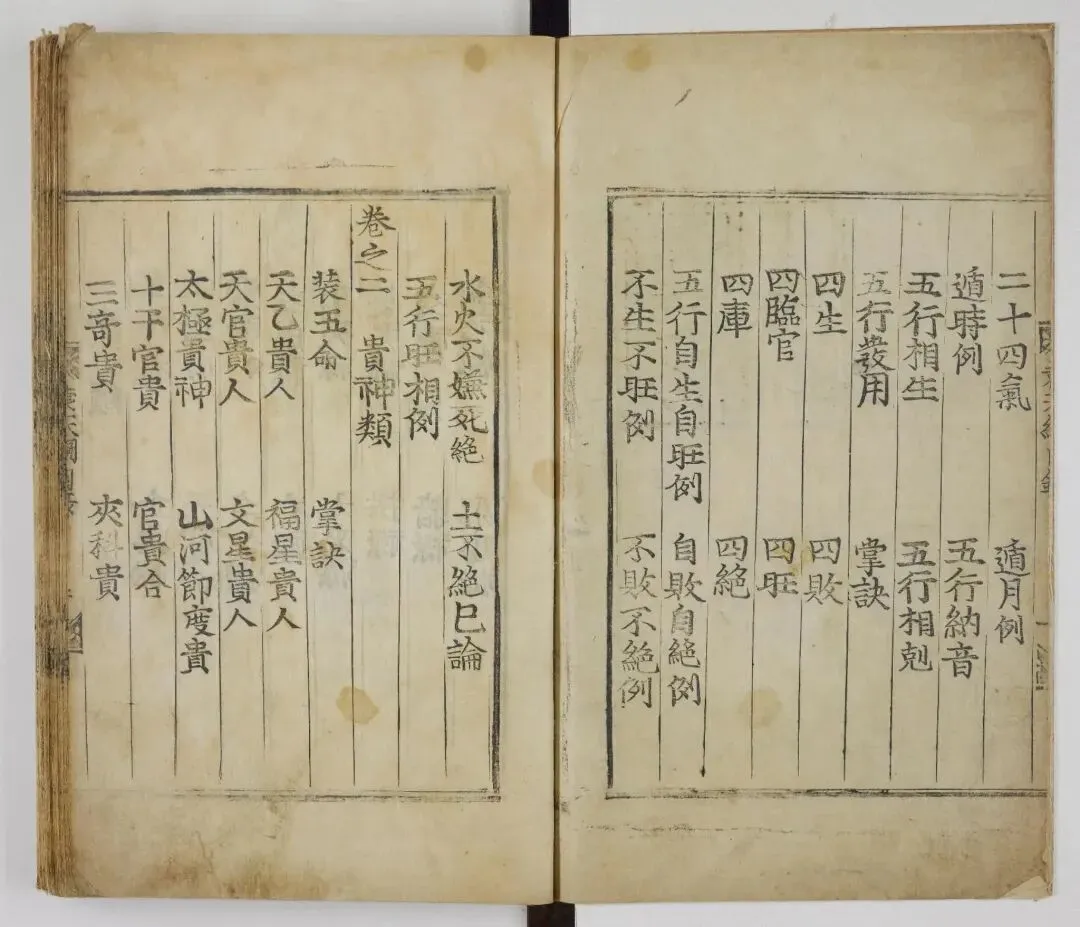 二十四氣 遁月例
遁時例 五行納音
五行相生 五行相剋
五行發用 掌訣
四生 四敗
四臨官 四旺
四庫 四絕
五行自生自旺例 自敗自絕例
不生不旺例 不敗不絕例
水火不嫌死絕 土不絕巳論
五行旺相例
卷之二 貴神類
裝五命 掌訣
天乙貴人 福星貴人
天官貴人 文星貴人
太極貴神 山河節度貴
十干官貴 官貴合
三奇貴 夾科貴